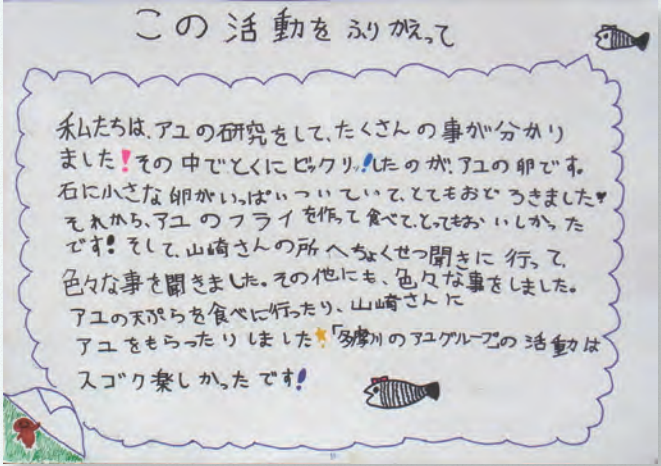 この活動をふりかえって
私たちは、アユの研究をして、たくさんの事が分かり
ました!その中でとくにビックリッ!したのが、アユの卵です。
石に小さな卵がいっぱいついていて、とてもおどろきました♥
それから、アユのフライを作って食べて、とってもおいしかった
です!そして、山崎さんの所へちょくせつ聞きに行って、
色々な事を聞きました。その他にも、色々な事をしました。
アユの天ぷらを食べに行ったり、山崎さんに
アユをもらったりしました!「多摩川のアユグループ」の活動は
スゴク楽しかったです!